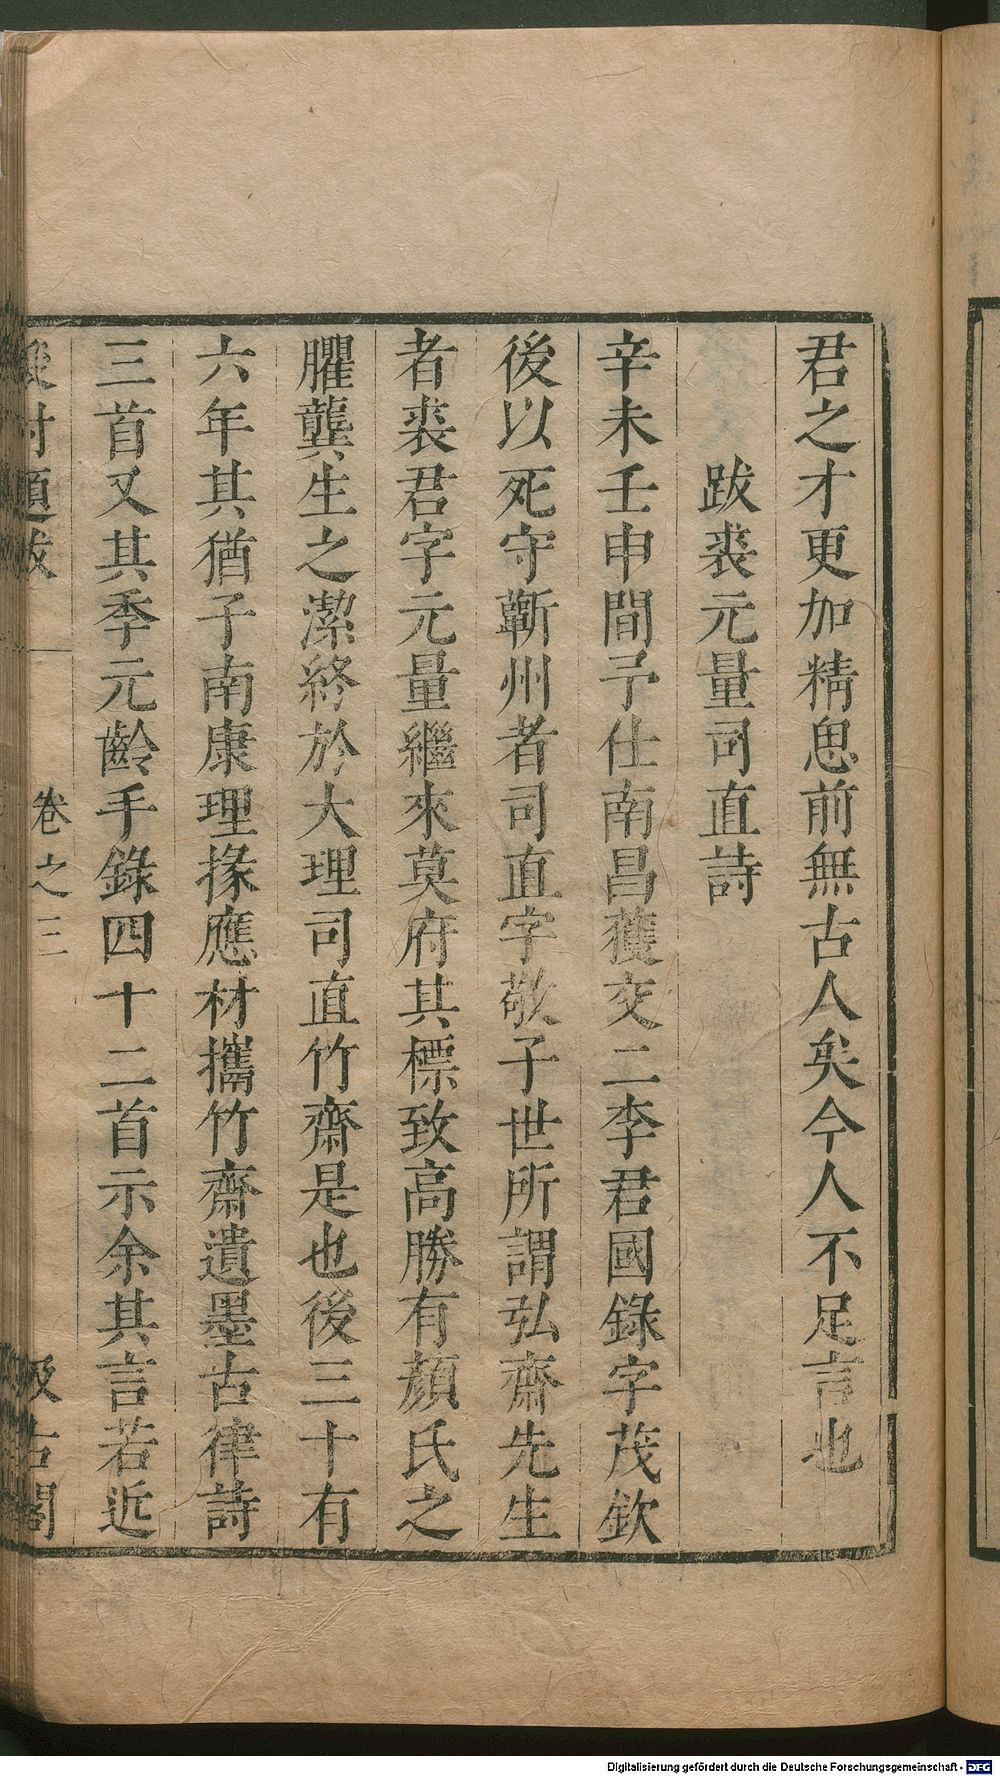 君之才更加精思前無古人矣今人不足言也
跋裘元量司直詩
辛未壬申間予仕南昌獲交二李君國錄字茂欽
後以死守蘄州者司直字敬子世所謂弘齋先生
者裘君字元量繼來莫府其標致高勝有顏氏之
臞龔生之潔終於大理司直竹齋是也後三十有
六年其猶子南康理掾應材攜竹齋遺墨古律詩
三首又其季元齡手錄四十二首示余其言若近
後村題跋 卷之三 汲古閣
Digitalisierung gefördert durch die Deutsche Forschungsgemeinschaft - DFG